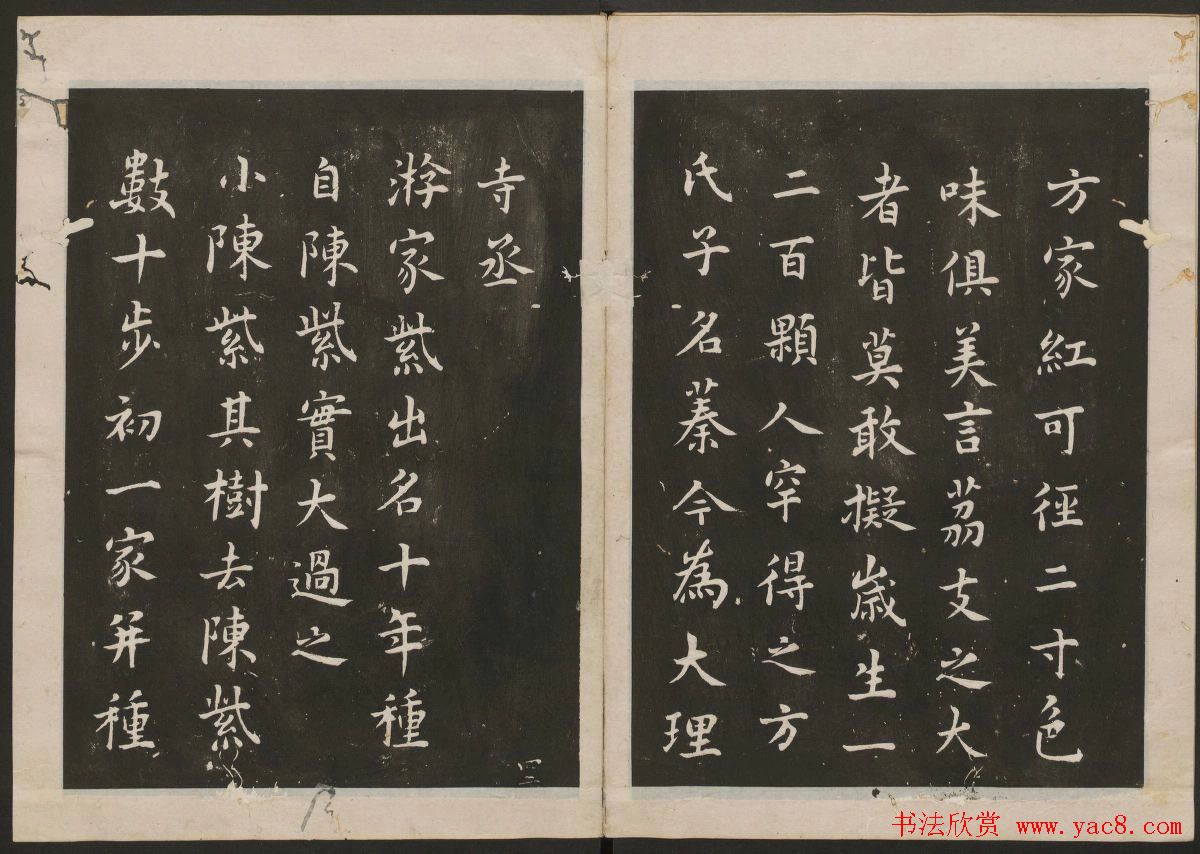 方家紅可徑二寸色
味俱美言荔支之大
者皆莫敢擬歲生一
二百顆人罕得之方
氏子名蓁今為大理
寺丞
游家紫出名十年種
自陳紫實大過之
小陳紫其樹去陳紫
數十步初一家并種
四三
书法欣赏 www.yac8.com